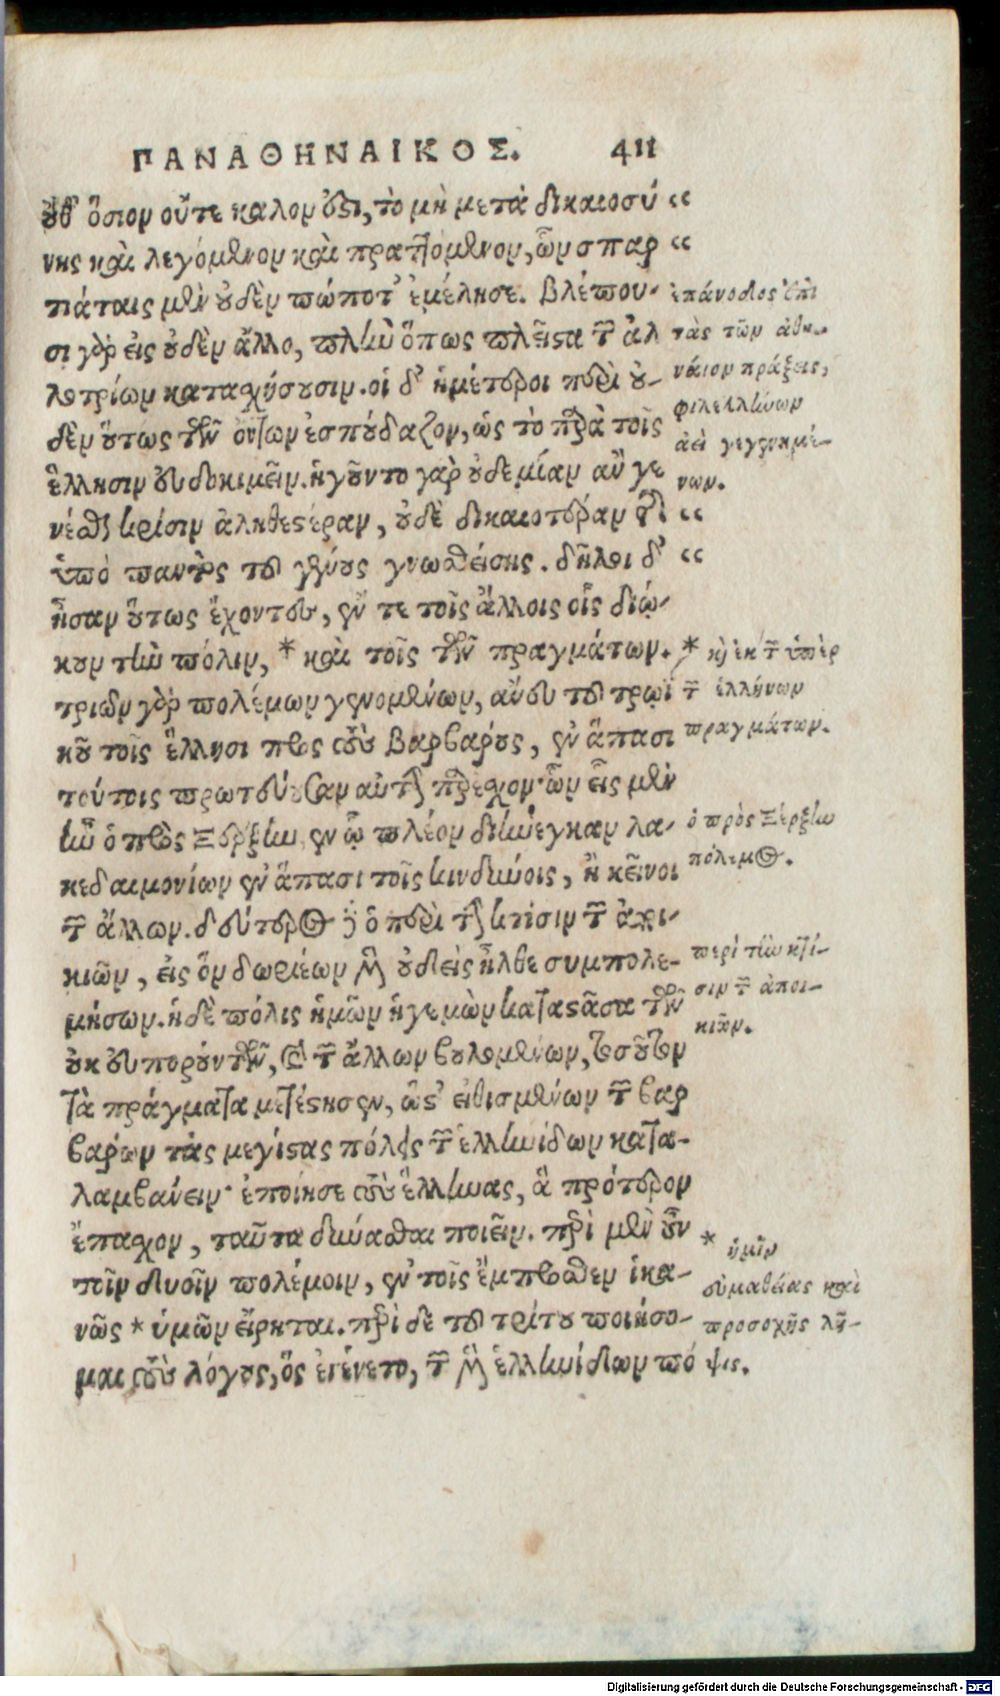 ΠΑΝΑΘΗΝΑΙΚΟΣ. 411
οὔθ' ὅσιον οὔτε καλόν ὄστι, τὸ μὴ μετὰ δικαιοσύ “
νης καὶ λεγόμενον καὶ πραττόμενον, ὧν σπαρ “
τιάταις μὲν οὐδὲν πώποτ' ἐμέλησε. βλέπου-
σι γὸρ εἰς οὐδὲν ἄλλο, πλὴν ὅπως πλεῖστα τῶν ἀλ
λοτρίων κατασχήσουσιν. οἱ δ' ἡμέτεροι περὶ οὐ-
δὲν οὕτως τῶν ὄντων ἐσπούδαζον, ὡς τὸ παρὰ τοῖς
ἕλλησιν εὐδοκιμεῖν. ἡγοῦντο γὰρ οὐδεμίαν ἂν γε
νέσθαι κρίσιν ἀληθεστέραν, οὐδὲ δικαιοτέραν τῆς “
ὑπὸ παντὸς τοῦ γένους γνωσθείσης. δῆλοι δ' “
ἦσαν οὕτως ἔχοντες, ἔν τε τοῖς ἄλλοις οἷς διῴ-
κουν τὴν πόλιν, * καὶ τοῖς τῶν πραγμάτων.
τριῶν γὸρ πολέμων γενομένων, ἄνευ τοῦ τρωϊ
κοῦ τοῖς ἕλλησι πρὸς τοὺς βαρβάρους, ἐν ἅπασι
τούτοις πρωτεύουσαν αὐτὴν παρέχον· ὧν εἷς μὲν
ἦν ὁ πρὸς Ξέρξην, ἐν ᾧ πλέον διήνεγκαν λα-
κεδαιμονίων ἐν ἅπασι τοῖς κινδύνοις, ἢ κεῖνοι
τῶν ἄλλων. δεύτερος δὲ ὁ περὶ τὴν κτίσιν τῶν ἀποι-
κιῶν, εἰς ὃν δωριέων μὲν οὐδεὶς ἦλθε συμπολε-
μήσων. ἡ δὲ πόλις ἡμῶν ἡγεμὼν καταστᾶσα τῶν
οὐκ εὐπορούντων, καὶ τῶν ἄλλων βουλομένων, τοσοῦτον
τὰ πράγματα μετέστησεν, ὥστ' εἰθισμένων τῶν βαρ
βάρων τὰς μεγίστας πόλεις τῶν ἑλληνίδων κατα-
λαμβάνειν· ἐποίησε τοὺς ἕλληνας, ἃ πρότερον
ἔπασχον, ταῦτα δύνασθαι ποιεῖν. περὶ μὲν οὖν
τοῖν δυοῖν πολέμοιν, ἐν τοῖς ἔμπροσθεν ἱκα-
νῶς * ὑμῶν εἴρηται. περὶ δὲ τοῦ τρίτου ποιήσο-
μαι τοὺς λόγους, ὃς ἐγένετο, τῶν μὲν ἑλληνίδων πό
ἐπάνοδος ἐπὶ
τὰς τῶν ἀθη-
ναίων πράξεις,
φιλελλήνων
ἀεὶ γεγενημέ-
νων.
* κἀκ τῶν ὑπὲρ
τῶν ἑλλήνων
πραγμάτων.
ὁ πρὸς Ξέρξην
πόλεμος.
περὶ τὴν κτί-
σιν τῶν ἀποι-
κιῶν.
* ἡμῖν
εὐμαθείας καὶ
προσοχῆς λῆ-
ψις.
Digitalisierung gefördert durch die Deutsche Forschungsgemeinschaft - DFG